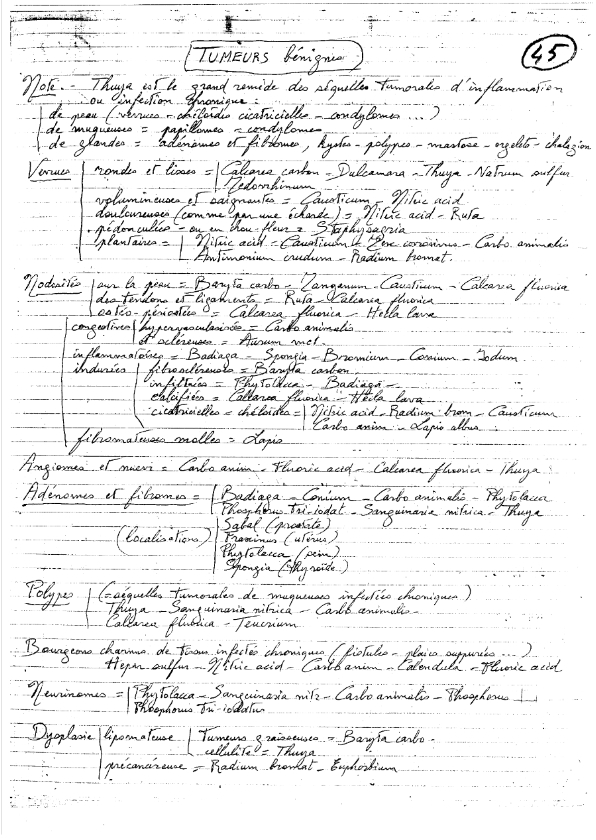 TUMEURS bénignes
45
Note.- Thuya est le grand remède des séquelles tumorales d'inflammation
ou infection chronique :
de peau (verrues - chéloïdes cicatricielles - condylomes ...)
de muqueuses = papillomes - condylomes
de glandes = adénomes et fibromes, kystes - polypes - mastose - orgelets - chalazion
Verrues rondes et lisses = Calcarea carbon - Dulcamara - Thuya - Natrum sulfur
Medorrhinum
volumineuses et saignantes = Causticum Nitric acid
douloureuses (comme par une écharde) = Nitric acid - Ruta
pédonculées - ou en chou-fleur = Staphysagria
plantaires = Nitric acid - Causticum - Merc corrosivus - Carbo animalis
Antimonium crudum - Radium bromat.
Nodosités sur la peau = Baryta carbo - Manganum - Causticum - Calcarea fluorica
des tendons et ligaments = Ruta - Calcarea fluorica
ostéo-périostées = Calcarea fluorica - Hecla lava
congestives hypervascularisées = Carbo animalis
et scléreuses = Aurum met.
inflammatoires = Badiaga - Spongia - Bromium - Conium - Iodum
indurées fibroscléreuses = Baryta carbon.
infiltrées = Phytolacca - Badiaga -
calcifiées = Calcarea fluorica - Hecla lava
cicatricielles - chéloïdes = Nitric acid - Radium brom - Causticum
Carbo anim - Lapis albus
fibromateuses molles = Lapis
Angiomes et nuevi = Carbo anim - Fluoric acid - Calcarea fluorica - Thuya
Adénomes et fibromes = Badiaga - Conium - Carbo animalis - Phytolacca
Phosphorus Tri-iodat - Sanguinaria nitrica - Thuya
(localisations) Sabal (prostate)
Fraxinus (utérus)
Phytolacca (sein)
Spongia (thyroïde)
Polypes (= séquelles tumorales de muqueuses infectées chroniques)
Thuya - Sanguinaria nitrica - Carbo animalis -
Calcarea fluorica - Teucrium
Bourgeons charnus de tissus infectés chroniques (fistules - plaies suppurées ...)
Hepar sulfur - Nitric acid - Carbo anim - Calendula - Fluoric acid
Neurinomes = Phytolacca - Sanguinaria nitr - Carbo animalis - Phosphorus
Phosphorus Tri-iodatus
Dysplasie lipomateuse Tumeurs graisseuses = Baryta carbo -
cellulite = Thuya
précancéreuse = Radium bromat - Euphorbium